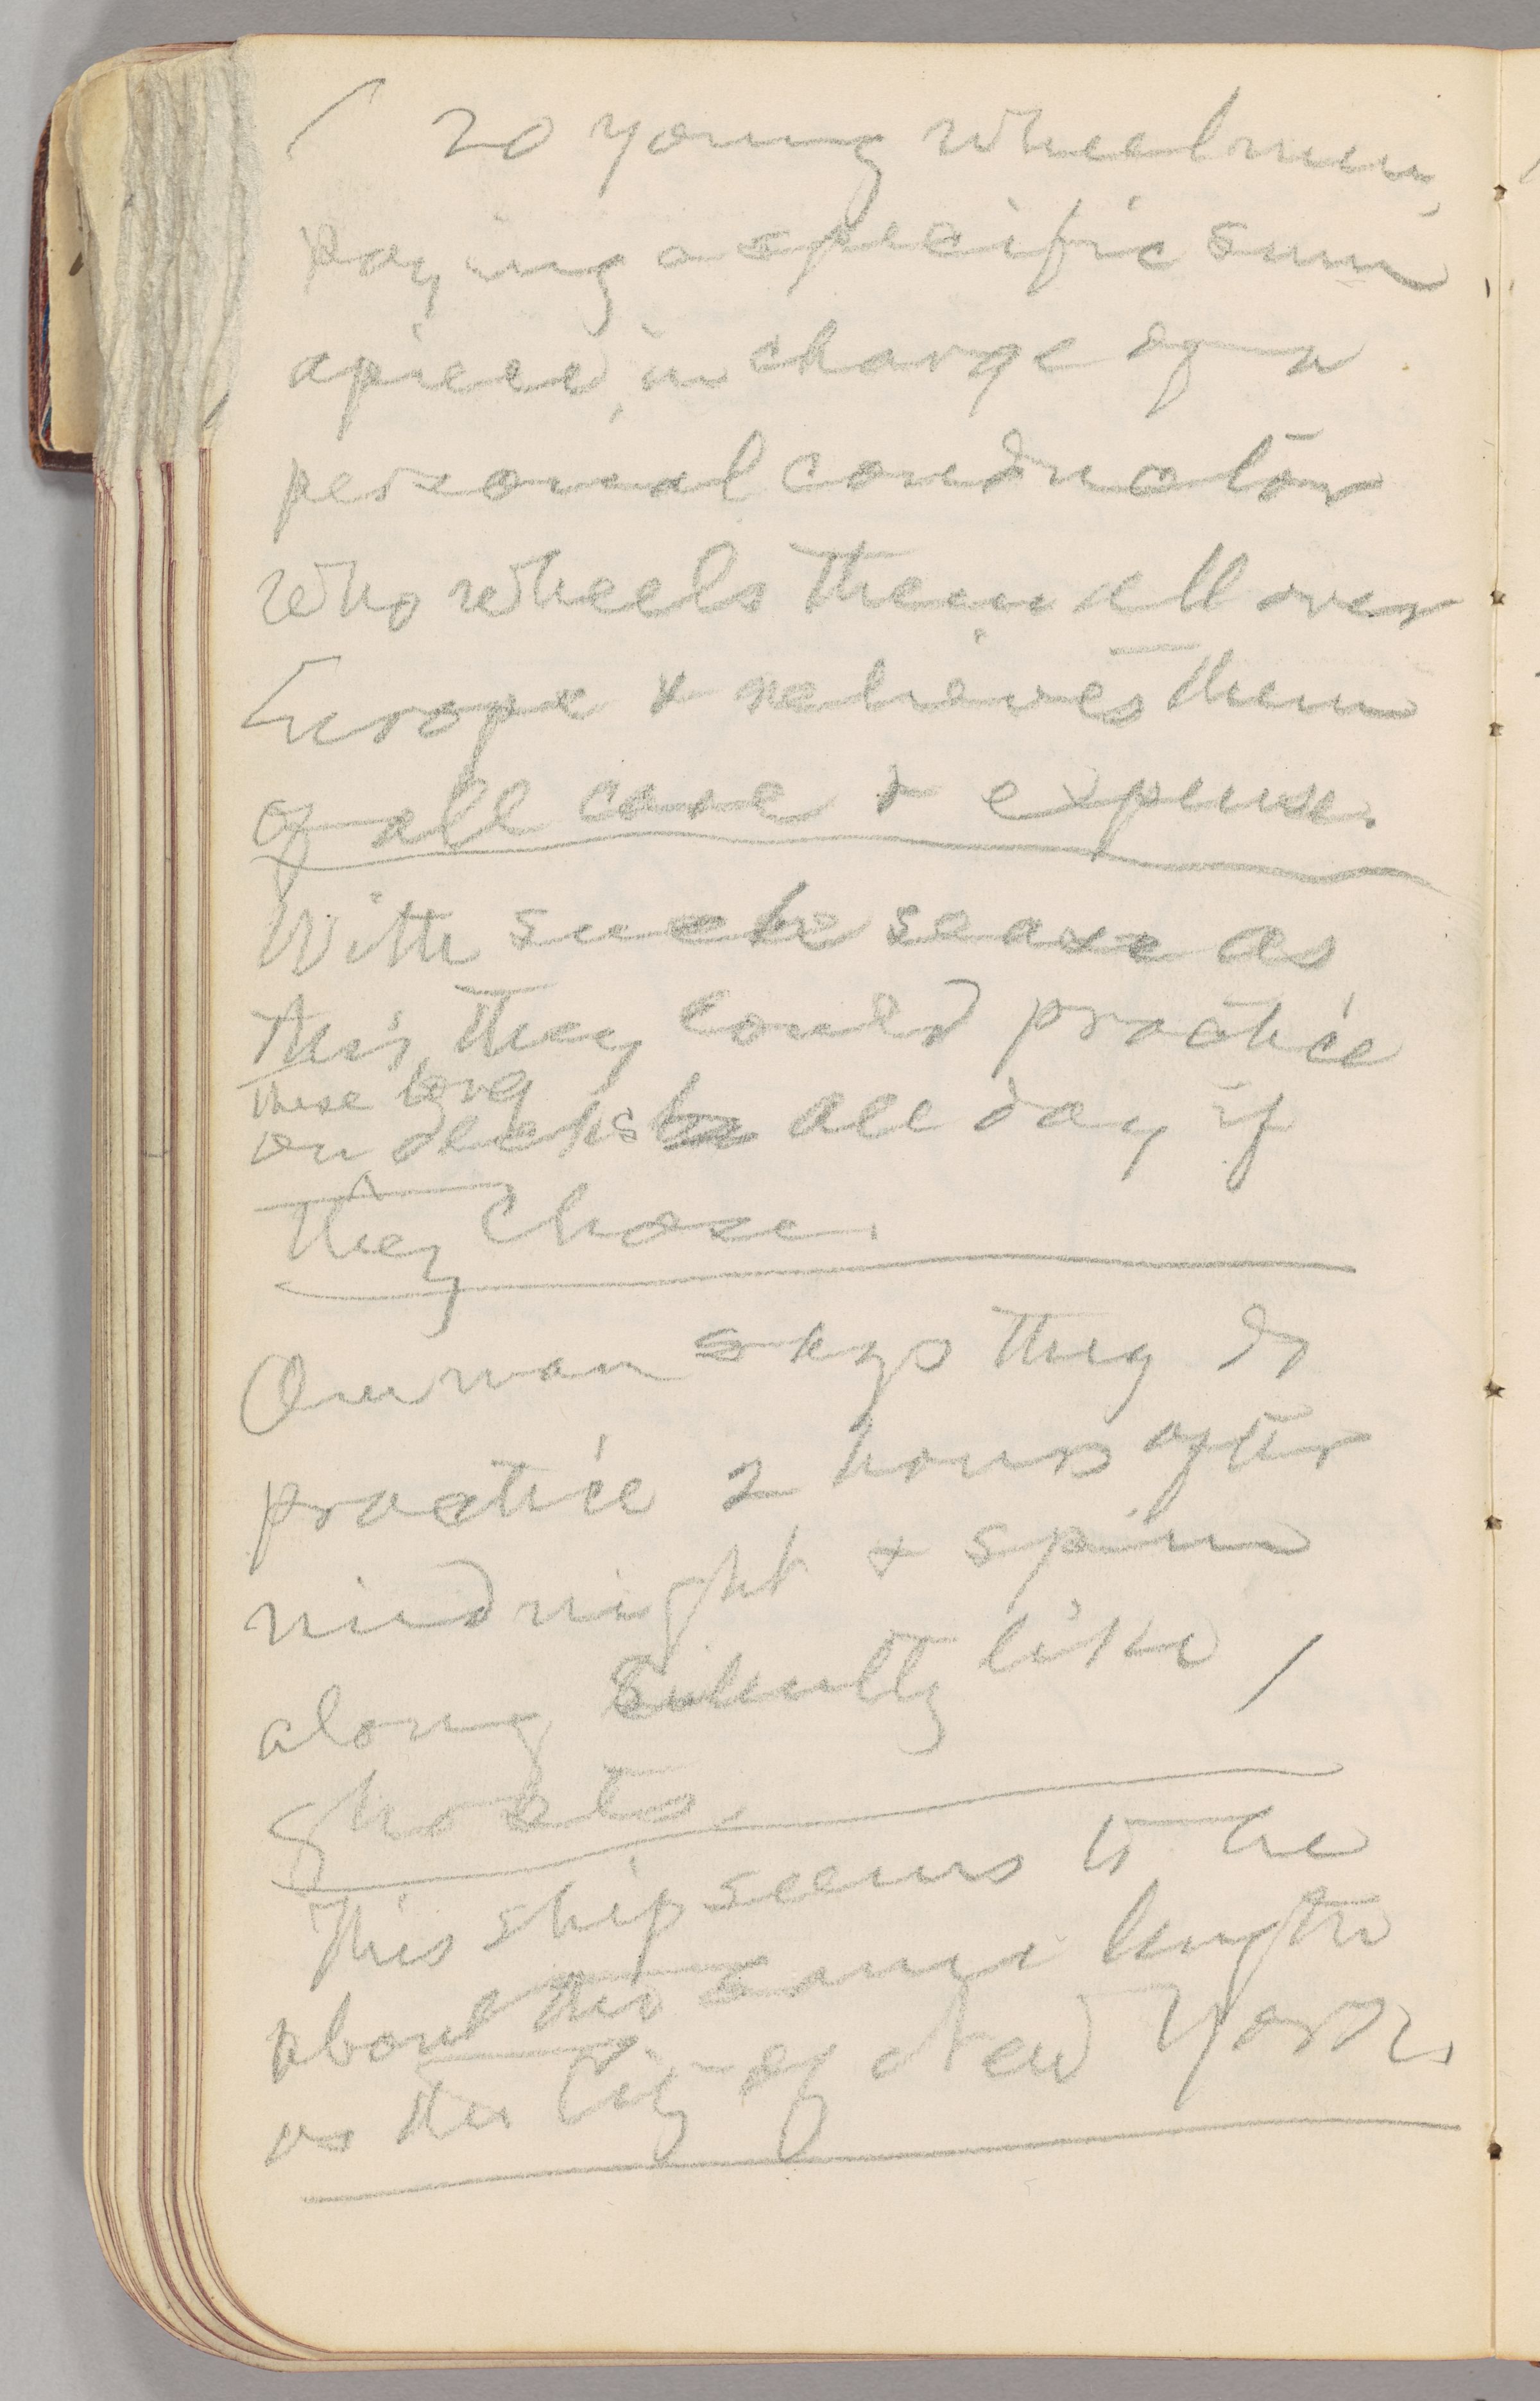 20 young wheelmen,
paying a specific sum
apiece, in charge of a
personal conductor
who wheels them all over
Europe & relieves them
of all care & expense.
With such seas as
this, they could practice
these long
on decks all day if
they chose.
One man says they do
practice 2 hours after
midnight & spin
along silently like
ghosts.
This ship seems to be
about the same length
as the City of New York.